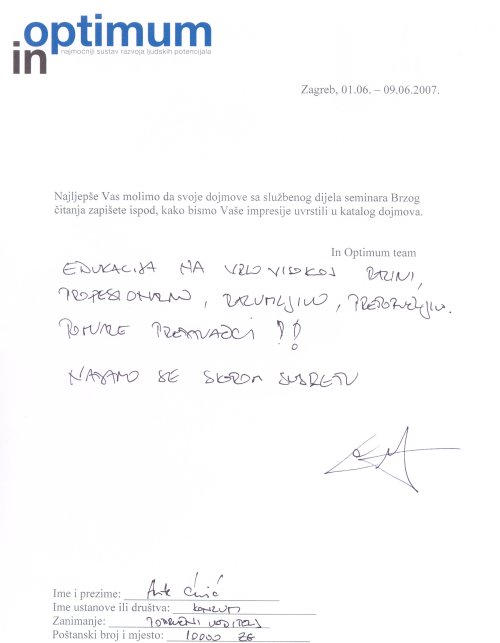 in optimum
najmoćniji sustav razvoja ljudskih potencijala
Zagreb, 01.06. – 09.06.2007.
Najljepše Vas molimo da svoje dojmove sa službenog dijela seminara Brzog
čitanja zapišete ispod, kako bismo Vaše impresije uvrstili u katalog dojmova.
In Optimum team
EDUKACIJA NA VRLO VISOKOJ RAZINI,
PROFESIONALNO, RAZUMLJIVO, PREPORUČLJIVO.
POHVALE PREDAVAČICI !!
NADAMO SE SKOROM SUSRETU
Ime i prezime: Ante
Ime ustanove ili društva: KONZUM
Zanimanje: PODRUČNI VODITELJ
Poštanski broj i mjesto: 10000 ZG